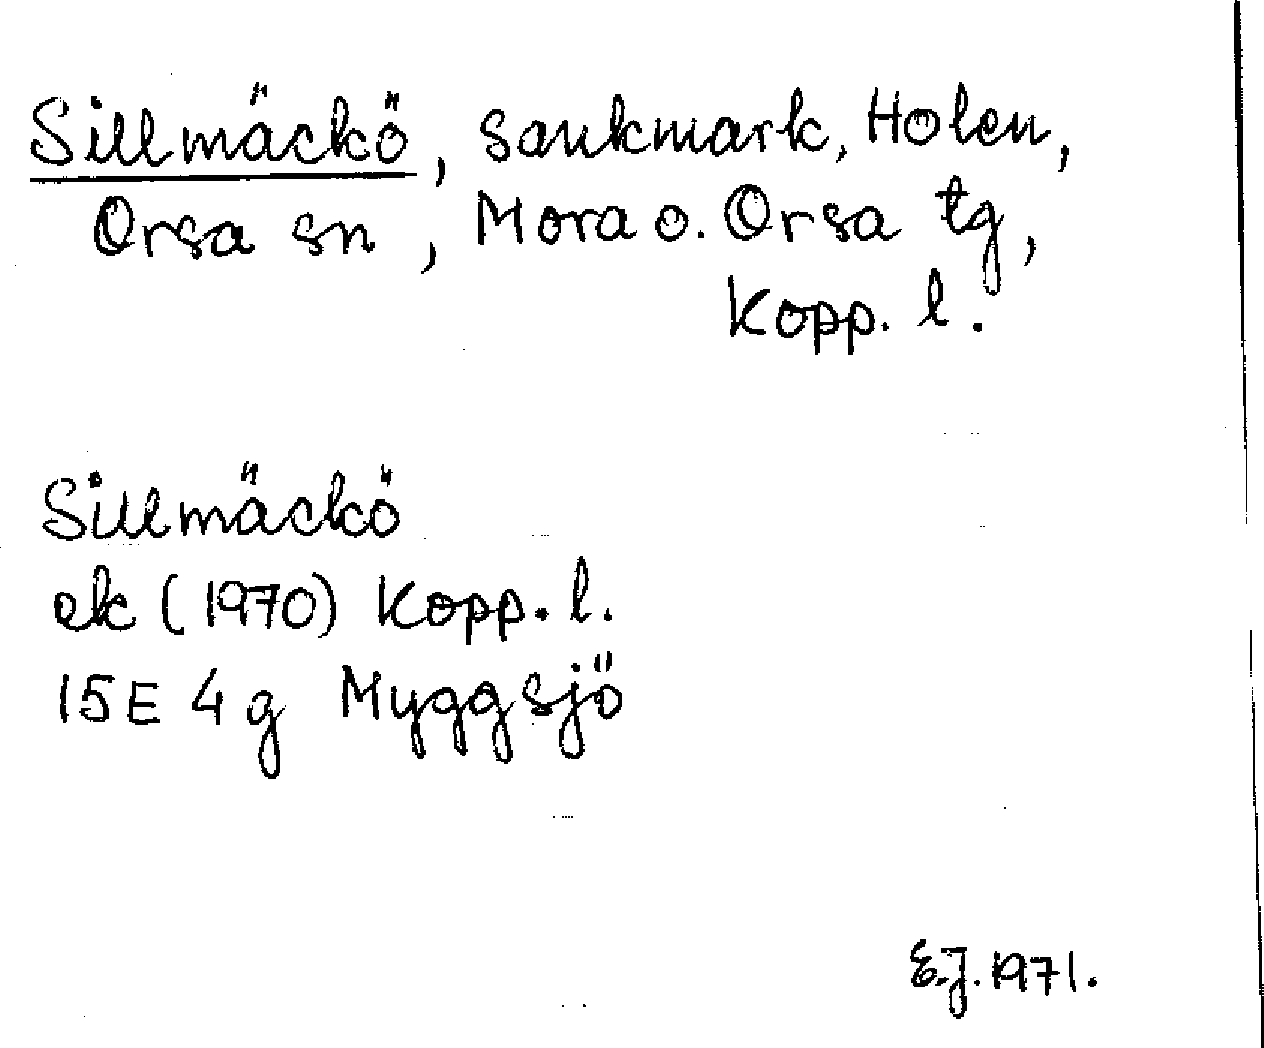 Sillmäckö, Sankmark, Holen,
Orsa sn, Mora o. Orsa tg,
Kopp. l.
Sillmäckö
ek (1970) Kopp. l.
15E 4g Myggsjö
E.J. 1971.